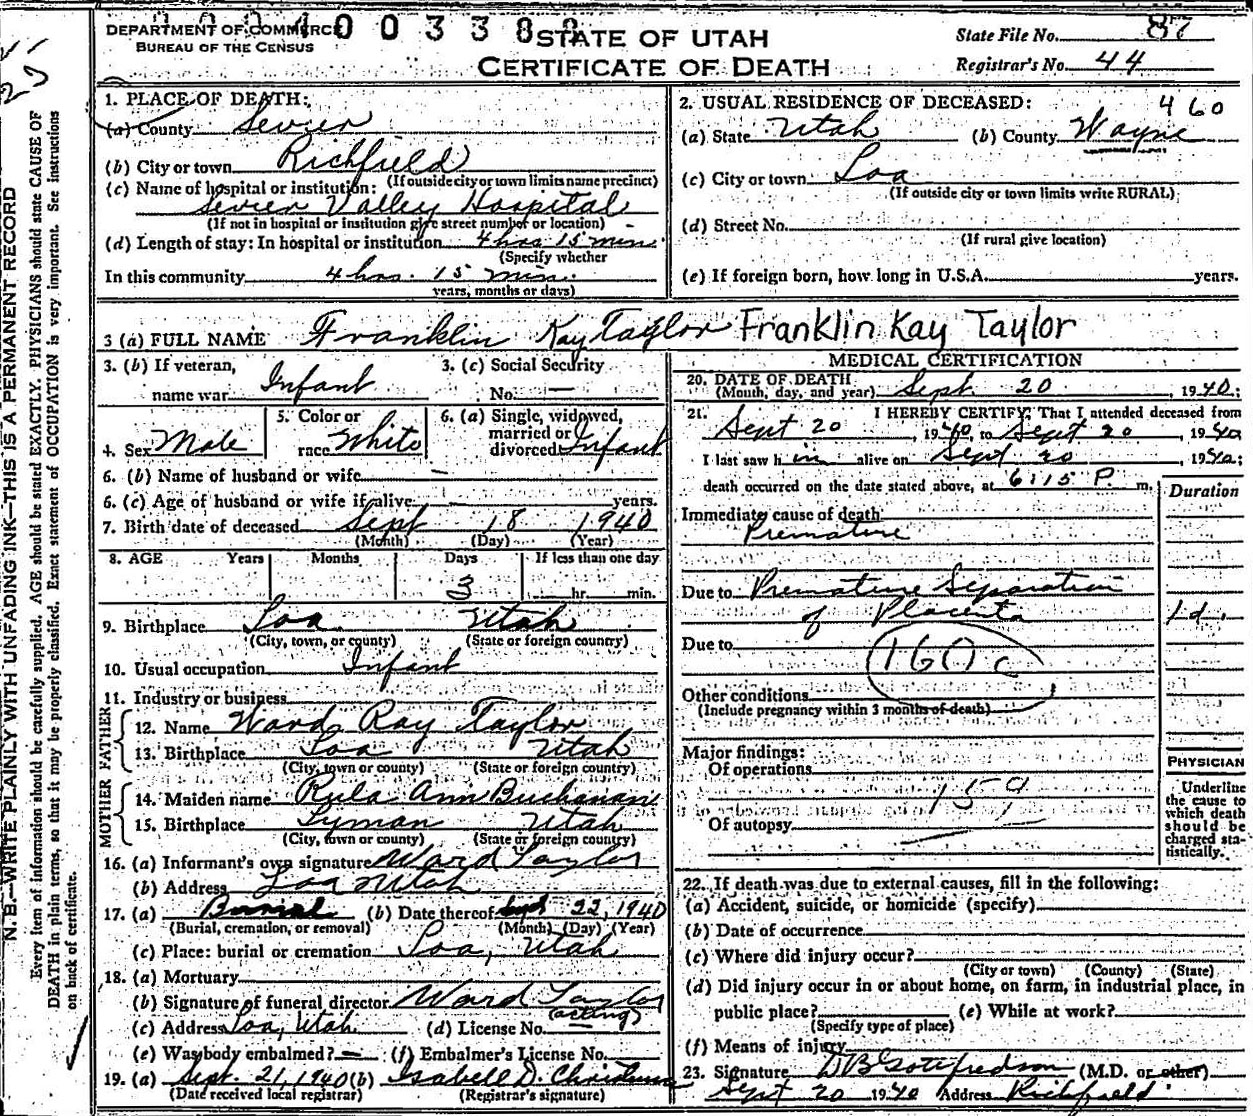 DEPARTMENT OF COMMERCE
BUREAU OF THE CENSUS
0 0 3 3 8
STATE OF UTAH
CERTIFICATE OF DEATH
State File No. 87
Registrar's No. 44
N.B.—WRITE PLAINLY WITH UNFADING INK—THIS IS A PERMANENT RECORD
Every item of information should be carefully supplied. AGE should be stated EXACTLY. PHYSICIANS should state CAUSE OF
DEATH in plain terms, so that it may be properly classified. Exact statement of OCCUPATION is very important. See instructions
on back of certificate.
1. PLACE OF DEATH:
(a) County Sevier
(b) City or town Richfield
(If outside city or town limits name precinct)
(c) Name of hospital or institution:
Sevier Valley Hospital
(If not in hospital or institution give street number or location)
(d) Length of stay: In hospital or institution 4 hrs 15 min.
(Specify whether
In this community 4 hrs. 15 min.
years, months or days)
2. USUAL RESIDENCE OF DECEASED: 460
(a) State Utah (b) County Wayne
(c) City or town Loa
(If outside city or town limits write RURAL)
(d) Street No.
(If rural give location)
(e) If foreign born, how long in U.S.A. years.
3 (a) FULL NAME Franklin Kay Taylor Franklin Kay Taylor
3. (b) If veteran,
name war Infant
3. (c) Social Security
No. —
4. Sex Male
5. Color or
race White
6. (a) Single, widowed,
married or
divorced Infant
6. (b) Name of husband or wife —
6. (c) Age of husband or wife if alive years.
7. Birth date of deceased Sept 18 1940
(Month) (Day) (Year)
8. AGE Years Months Days If less than one day
3 hr. min.
9. Birthplace Loa Utah
(City, town, or county) (State or foreign country)
10. Usual occupation Infant
11. Industry or business
FATHER
12. Name Ward Ray Taylor
13. Birthplace Loa Utah
(City, town or county) (State or foreign country)
MOTHER
14. Maiden name Rula Ann Buchanan
15. Birthplace Lyman Utah
(City, town or county) (State or foreign country)
16. (a) Informant's own signature Ward Taylor
(b) Address Loa Utah
17. (a) Burial (b) Date thereof Sept 22, 1940
(Burial, cremation, or removal) (Month) (Day) (Year)
(c) Place: burial or cremation Loa, Utah
18. (a) Mortuary
(b) Signature of funeral director Ward Taylor
(acting)
(c) Address Loa, Utah (d) License No. —
(e) Was body embalmed? — (f) Embalmer's License No.
19. (a) Sept. 21, 1940 (b) Isabell D. Christensen
(Date received local registrar) (Registrar's signature)
MEDICAL CERTIFICATION
20. DATE OF DEATH
(Month, day, and year) Sept. 20, 1940;
21. I HEREBY CERTIFY, That I attended deceased from
Sept 20, 1940, to Sept 20, 1940
I last saw him alive on Sept 20, 1940;
death occurred on the date stated above, at 6:15 P. m.
Duration
Immediate cause of death
Premature
Due to Premature Separation
of Placenta 1 d.
Due to
160 c
Other conditions
(Include pregnancy within 3 months of death)
Major findings:
Of operations
159
Of autopsy
PHYSICIAN
Underline
the cause to
which death
should be
charged sta-
tistically.
22. If death was due to external causes, fill in the following:
(a) Accident, suicide, or homicide (specify)
(b) Date of occurrence
(c) Where did injury occur?
(City or town) (County) (State)
(d) Did injury occur in or about home, on farm, in industrial place, in
public place? (e) While at work?
(Specify type of place)
(f) Means of injury
23. Signature DB Gottfredson (M.D. or other)
Sept 20 1940 Address Richfield